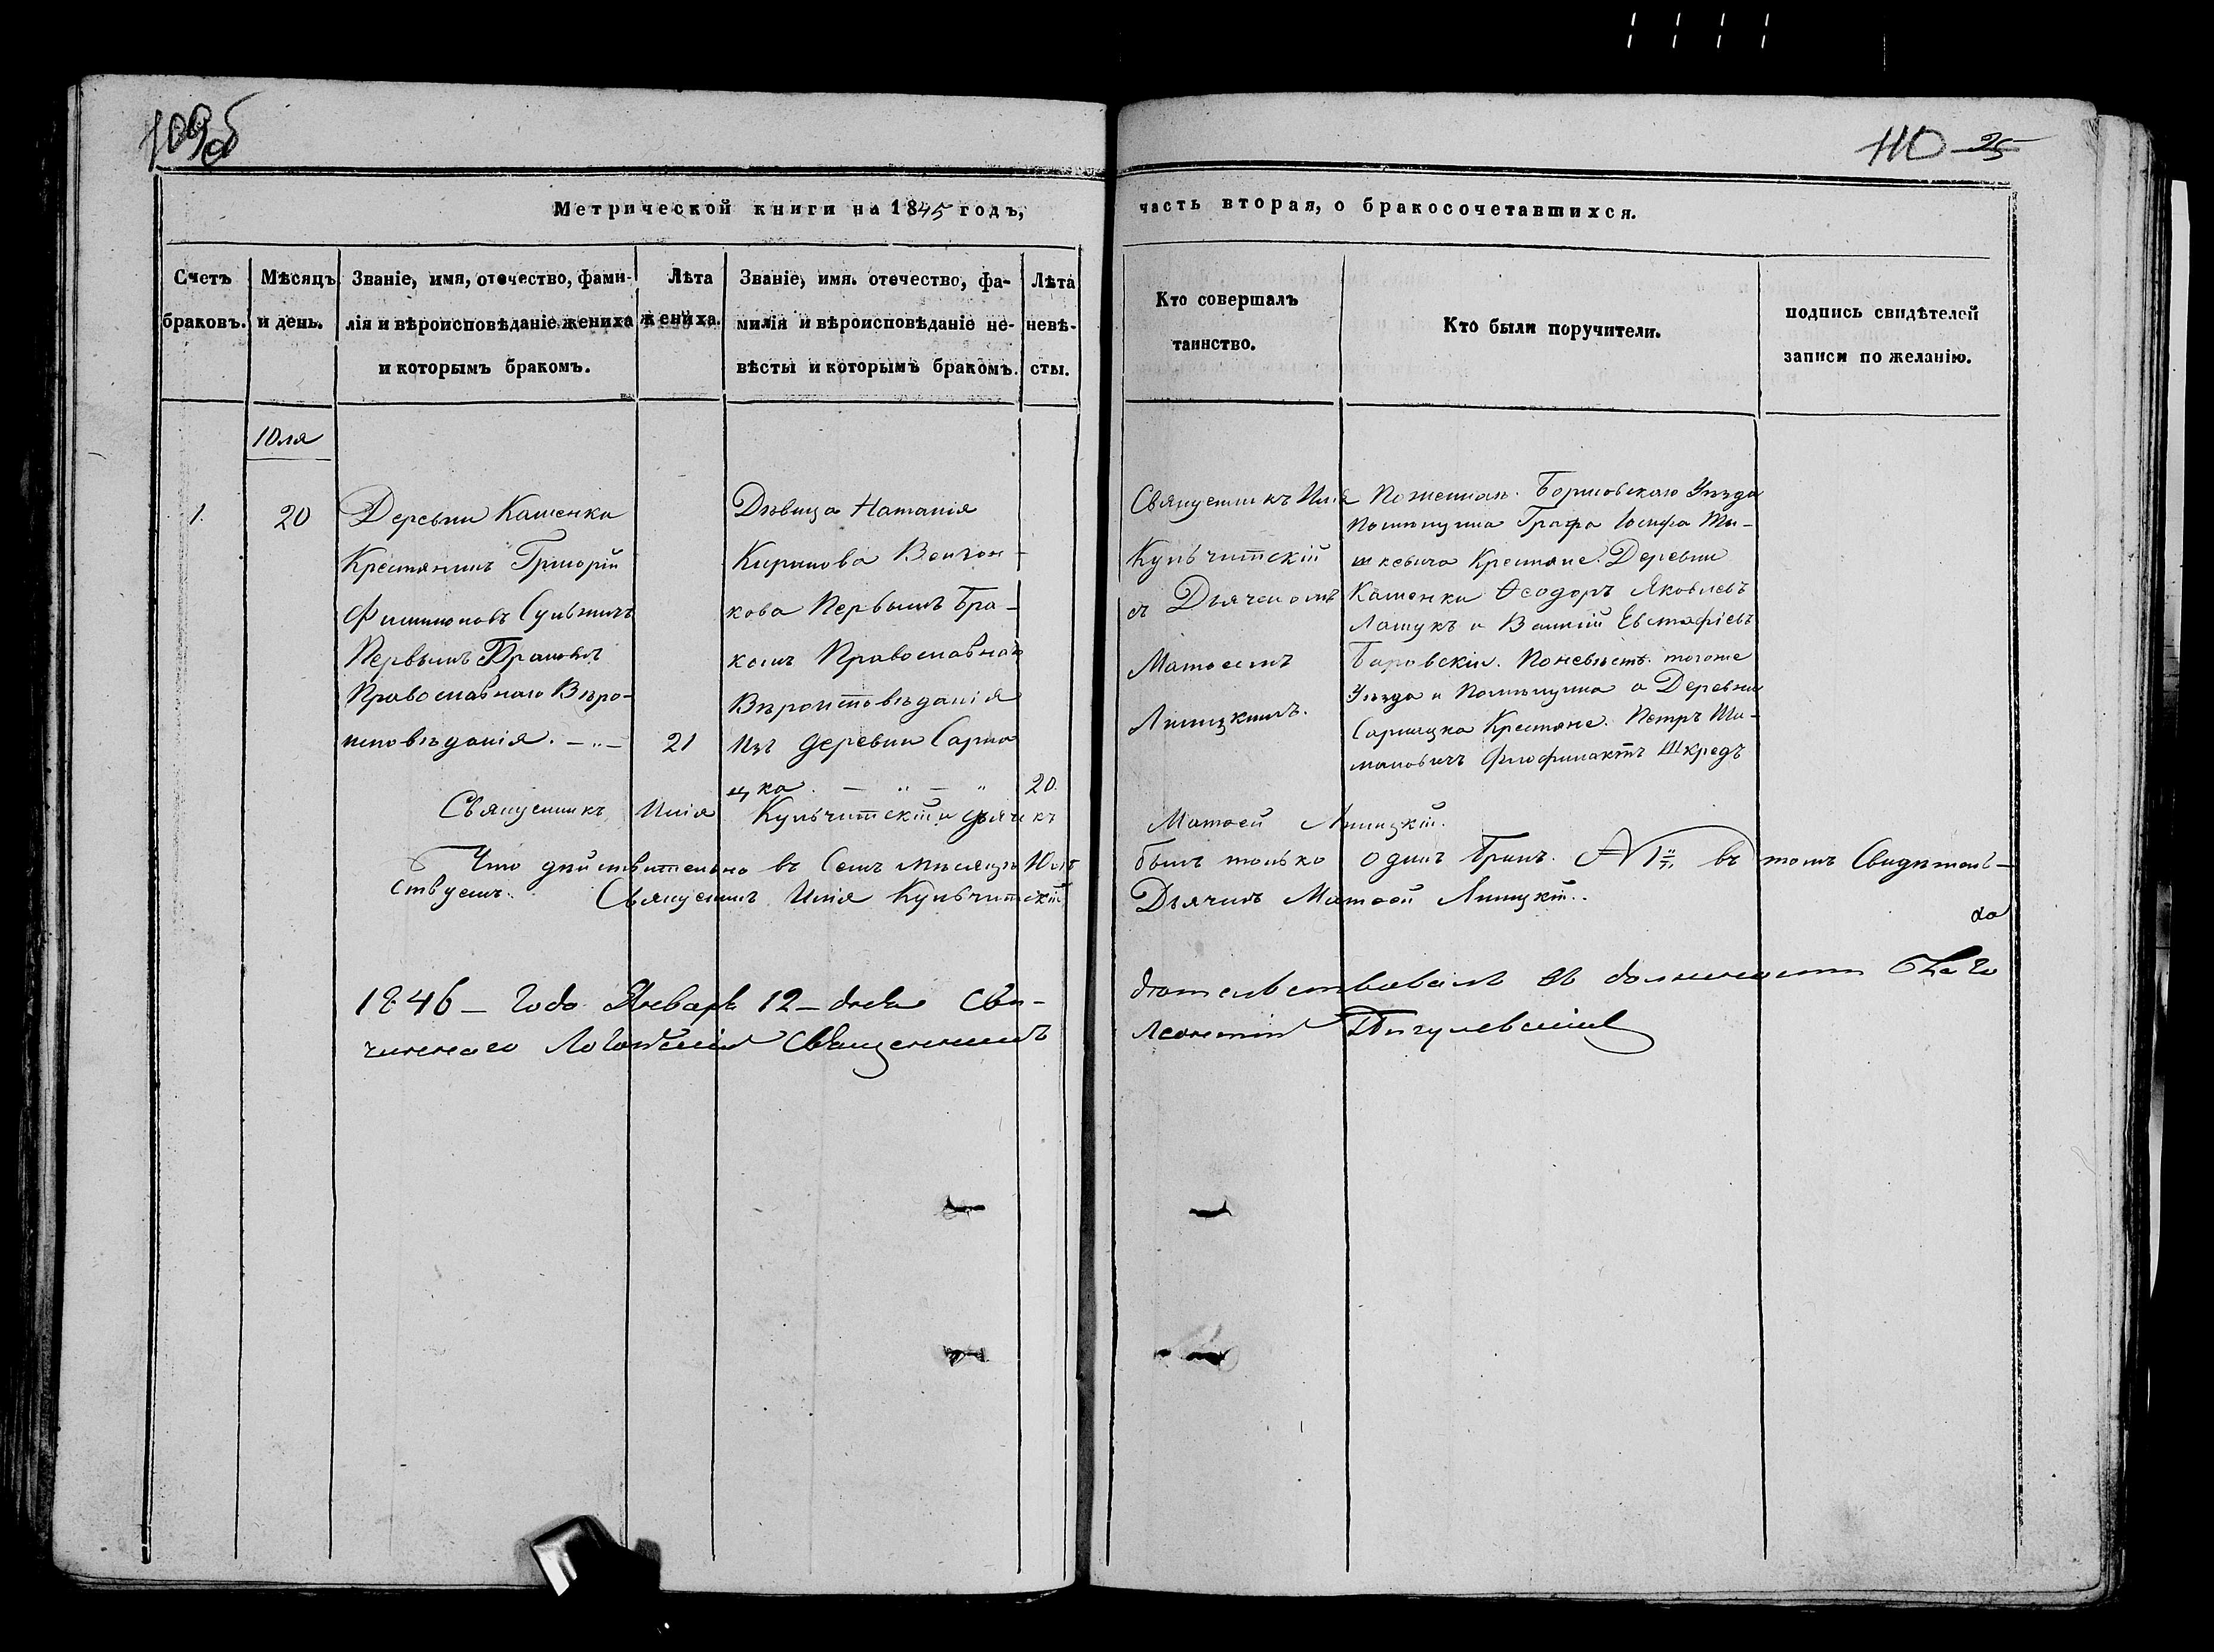 109об
110 25
Метрической книги на 1845 годъ,
часть вторая, о бракосочетавшихся.
Счетъ браковъ.
Мѣсяцъ и день.
Званіе, имя, отечество, фами-
лія и вѣроисповѣданіе жениха
и которымъ бракомъ.
Лѣта
жениха.
Званіе, имя. отечество, фа-
милія и вѣроисповѣданіе не-
вѣсты и которымъ бракомъ.
Лѣта
невѣ-
сты.
Кто совершалъ
таинство.
Кто были поручители.
подпись свидѣтелей
записи по желанію.
Юля
1.
20
Деревни Каменки
Крестянинъ Григорій
Филимоновъ Сульжичъ
Первымъ Бракомъ
Православнаго Вѣро-
исповѣданія.
21
Дѣвица Наталія
Кирилова
кова Первымъ бра-
комъ Православнаго
Вѣроисповѣданія
Изъ деревни Сарна
цка
20.
Священникъ Илія
Кульчитскій
съ Дьячкомъ
Матѳеемъ
Липицкимъ.
По женихѣ. Борисовскаго Уѣзда
Помѣщика Графа Іосифа Ты-
шкевича Крестяне. Деревни
Каменки Ѳеодоръ Яковлевъ
Лащукъ и Василій Евстафіевъ
Баровскій. По невѣстѣ. тогоже
Уѣзда и Помѣщика а Деревни
Сарнацка Крестяне. Петръ Ши-
мановичъ Шкредъ
Священникъ Илія Кульчитскій и дьячекъ
Матѳей Липицкій.
Что дѣйствительно въ Семъ мѣсяцѣ Юлѣ
былъ только одинъ бракъ. №1й въ томъ Свидѣтель-
ствуемъ. Священникъ Илія Кульчитскій
Дьячекъ Матѳей Липицкій.
1846 – года Января 12 – дня Сви-
дѣтельствовалъ въ должности Благо
чиннаго Логойскій Священникъ
Леонтій Пигулевскій